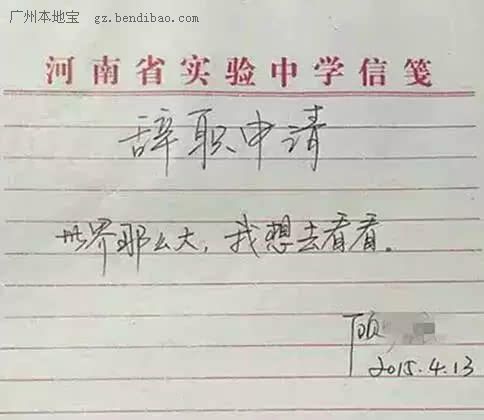 广州本地宝 gz.bendibao.com
河南省实验中学信笺
辞职申请
世界那么大，我想去看看。
顾
2015.4.13